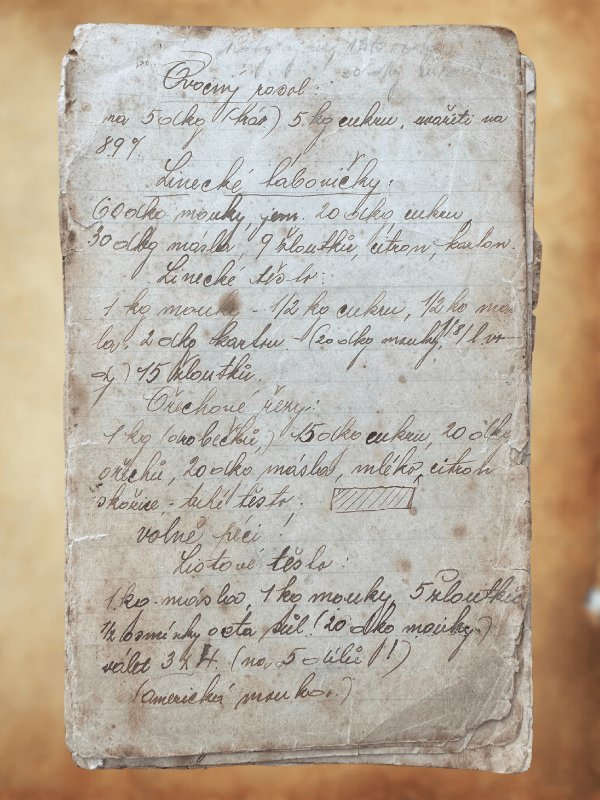 Ovocný rosol:
na 5 dkg (kár.) 5 kg cukru, svařiti na
89%
Linecké bábovičky:
60 dkg mouky, jem. 20 dkg cukru,
30 dkg másla, 9 žloutků, citron, karbon.
Linecké těsto:
1 kg mouky - 1/2 kg cukru, 1/2 kg más
la. 2 dkg karbon - (20 dkg mouky, 1/8 l vo-
dy) 15 žloutků.
Ořechové řezy:
1 kg (drobečků,) 25 dkg cukru, 20 dkg
ořechů, 20 dkg másla, mléko, citron
skořice, - tuhé těsto.
volně péci!
Listové těsto:
1 kg. másla, 1 kg mouky, 5 žloutků
1/2 osminky octa sůl (20 dkg mouky.)
válet 3 x 4. (na 5 dílů!)
(americká mouka.)